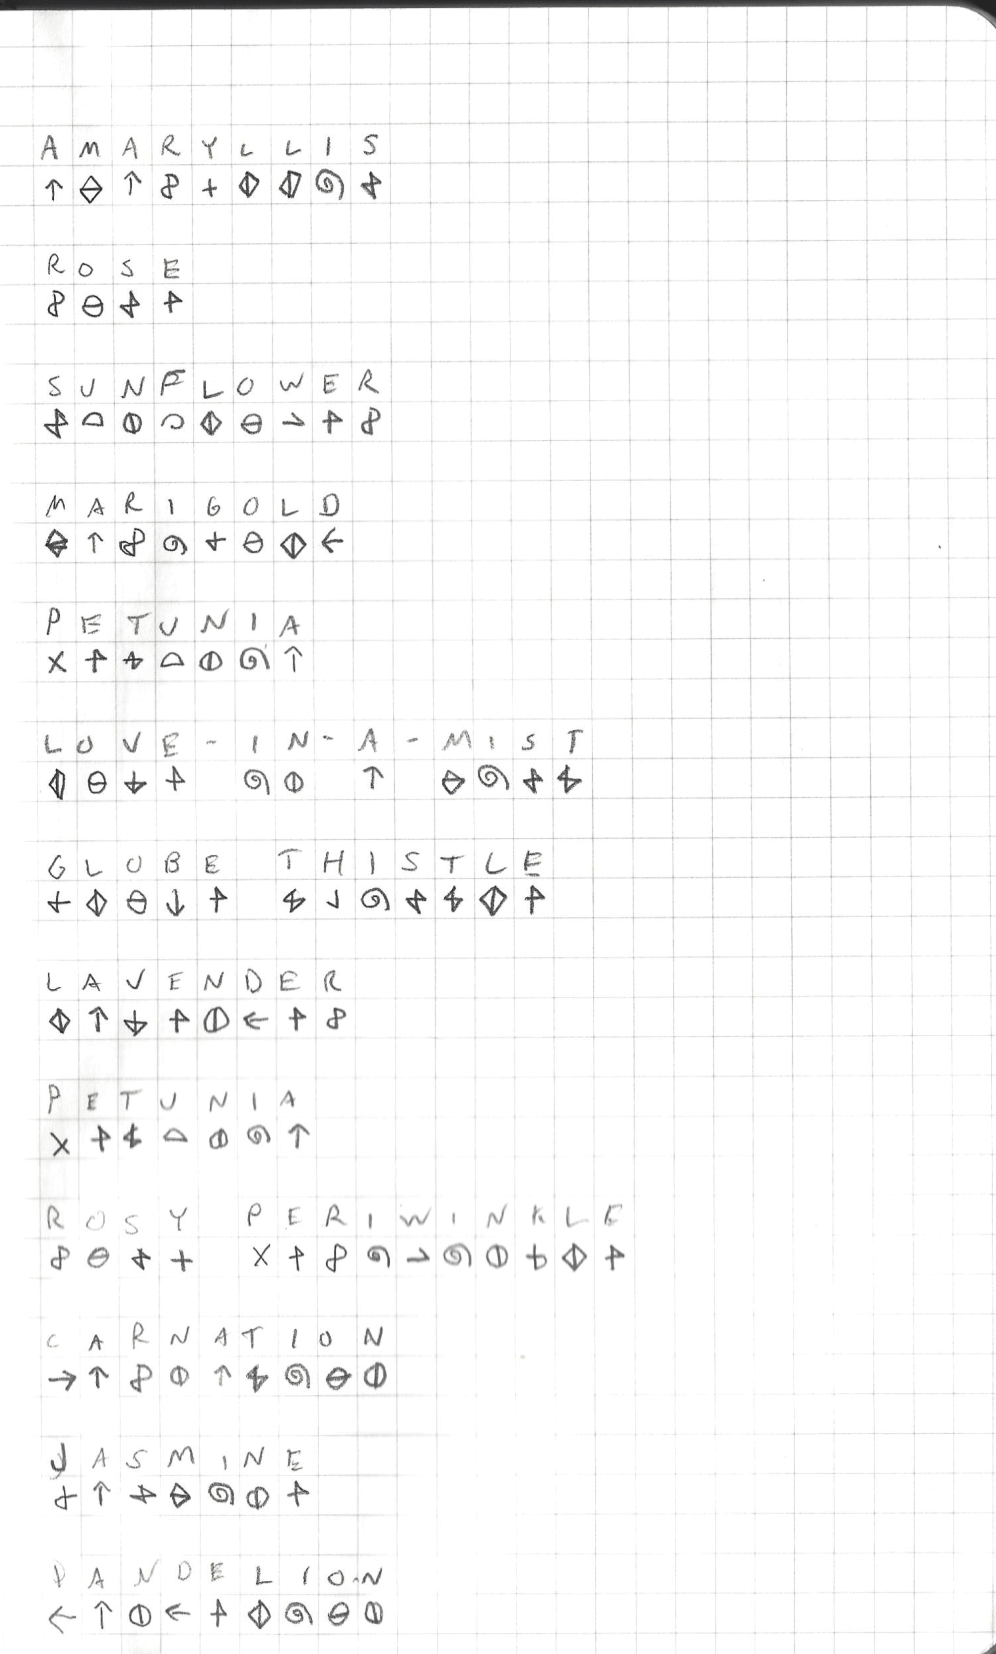 AMARYLLIS
ROSE
SUNFLOWER
MARIGOLD
PETUNIA
LOVE-IN-A-MIST
GLOBE THISTLE
LAVENDER
PETUNIA
ROSY PERIWINKLE
CARNATION
JASMINE
DANDELION